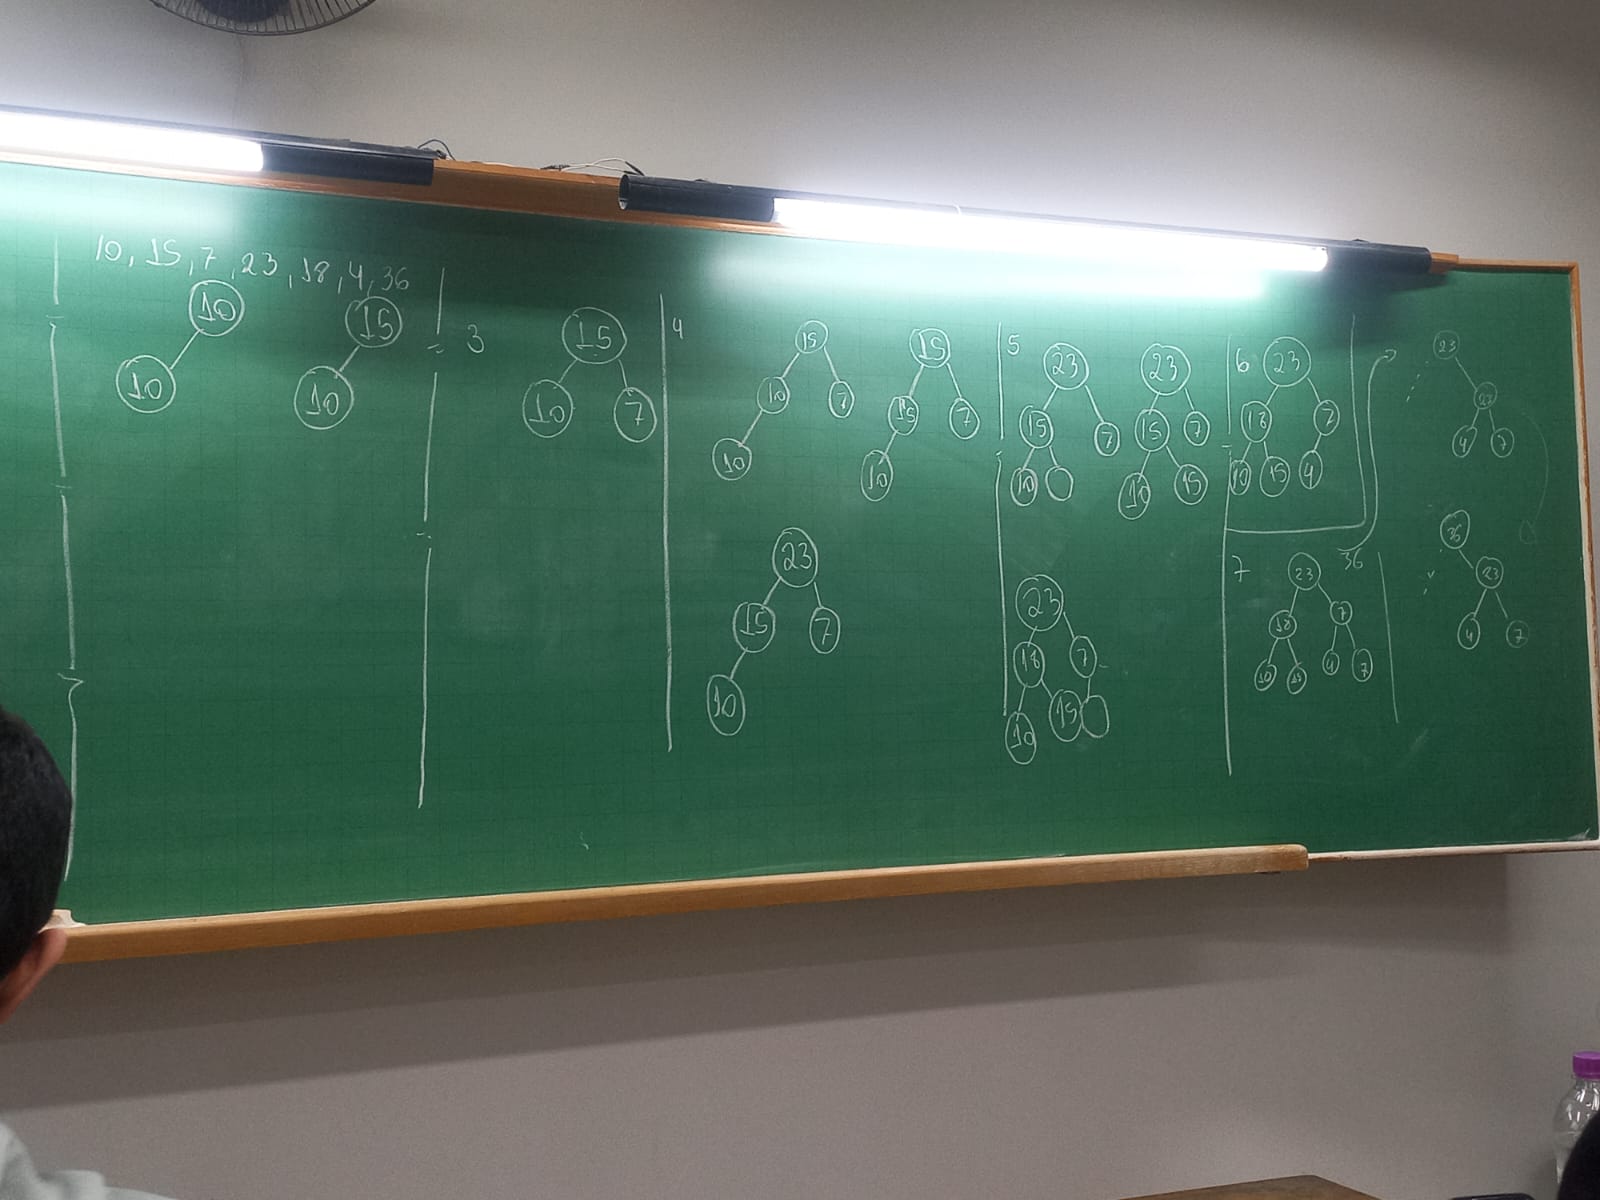 10, 15, 7, 23, 18, 4, 36
10
10
15
10
3
15
10 7
4
15
10 7
10
15
15 7
10
23
15 7
10
5
23
15 7
10
23
15 7
10 15
23
18 7
10 15
6
23
18 7
10 15 4
7
36
23
18 7
10 15 4 7
23
23
4 7
36
23
4 7